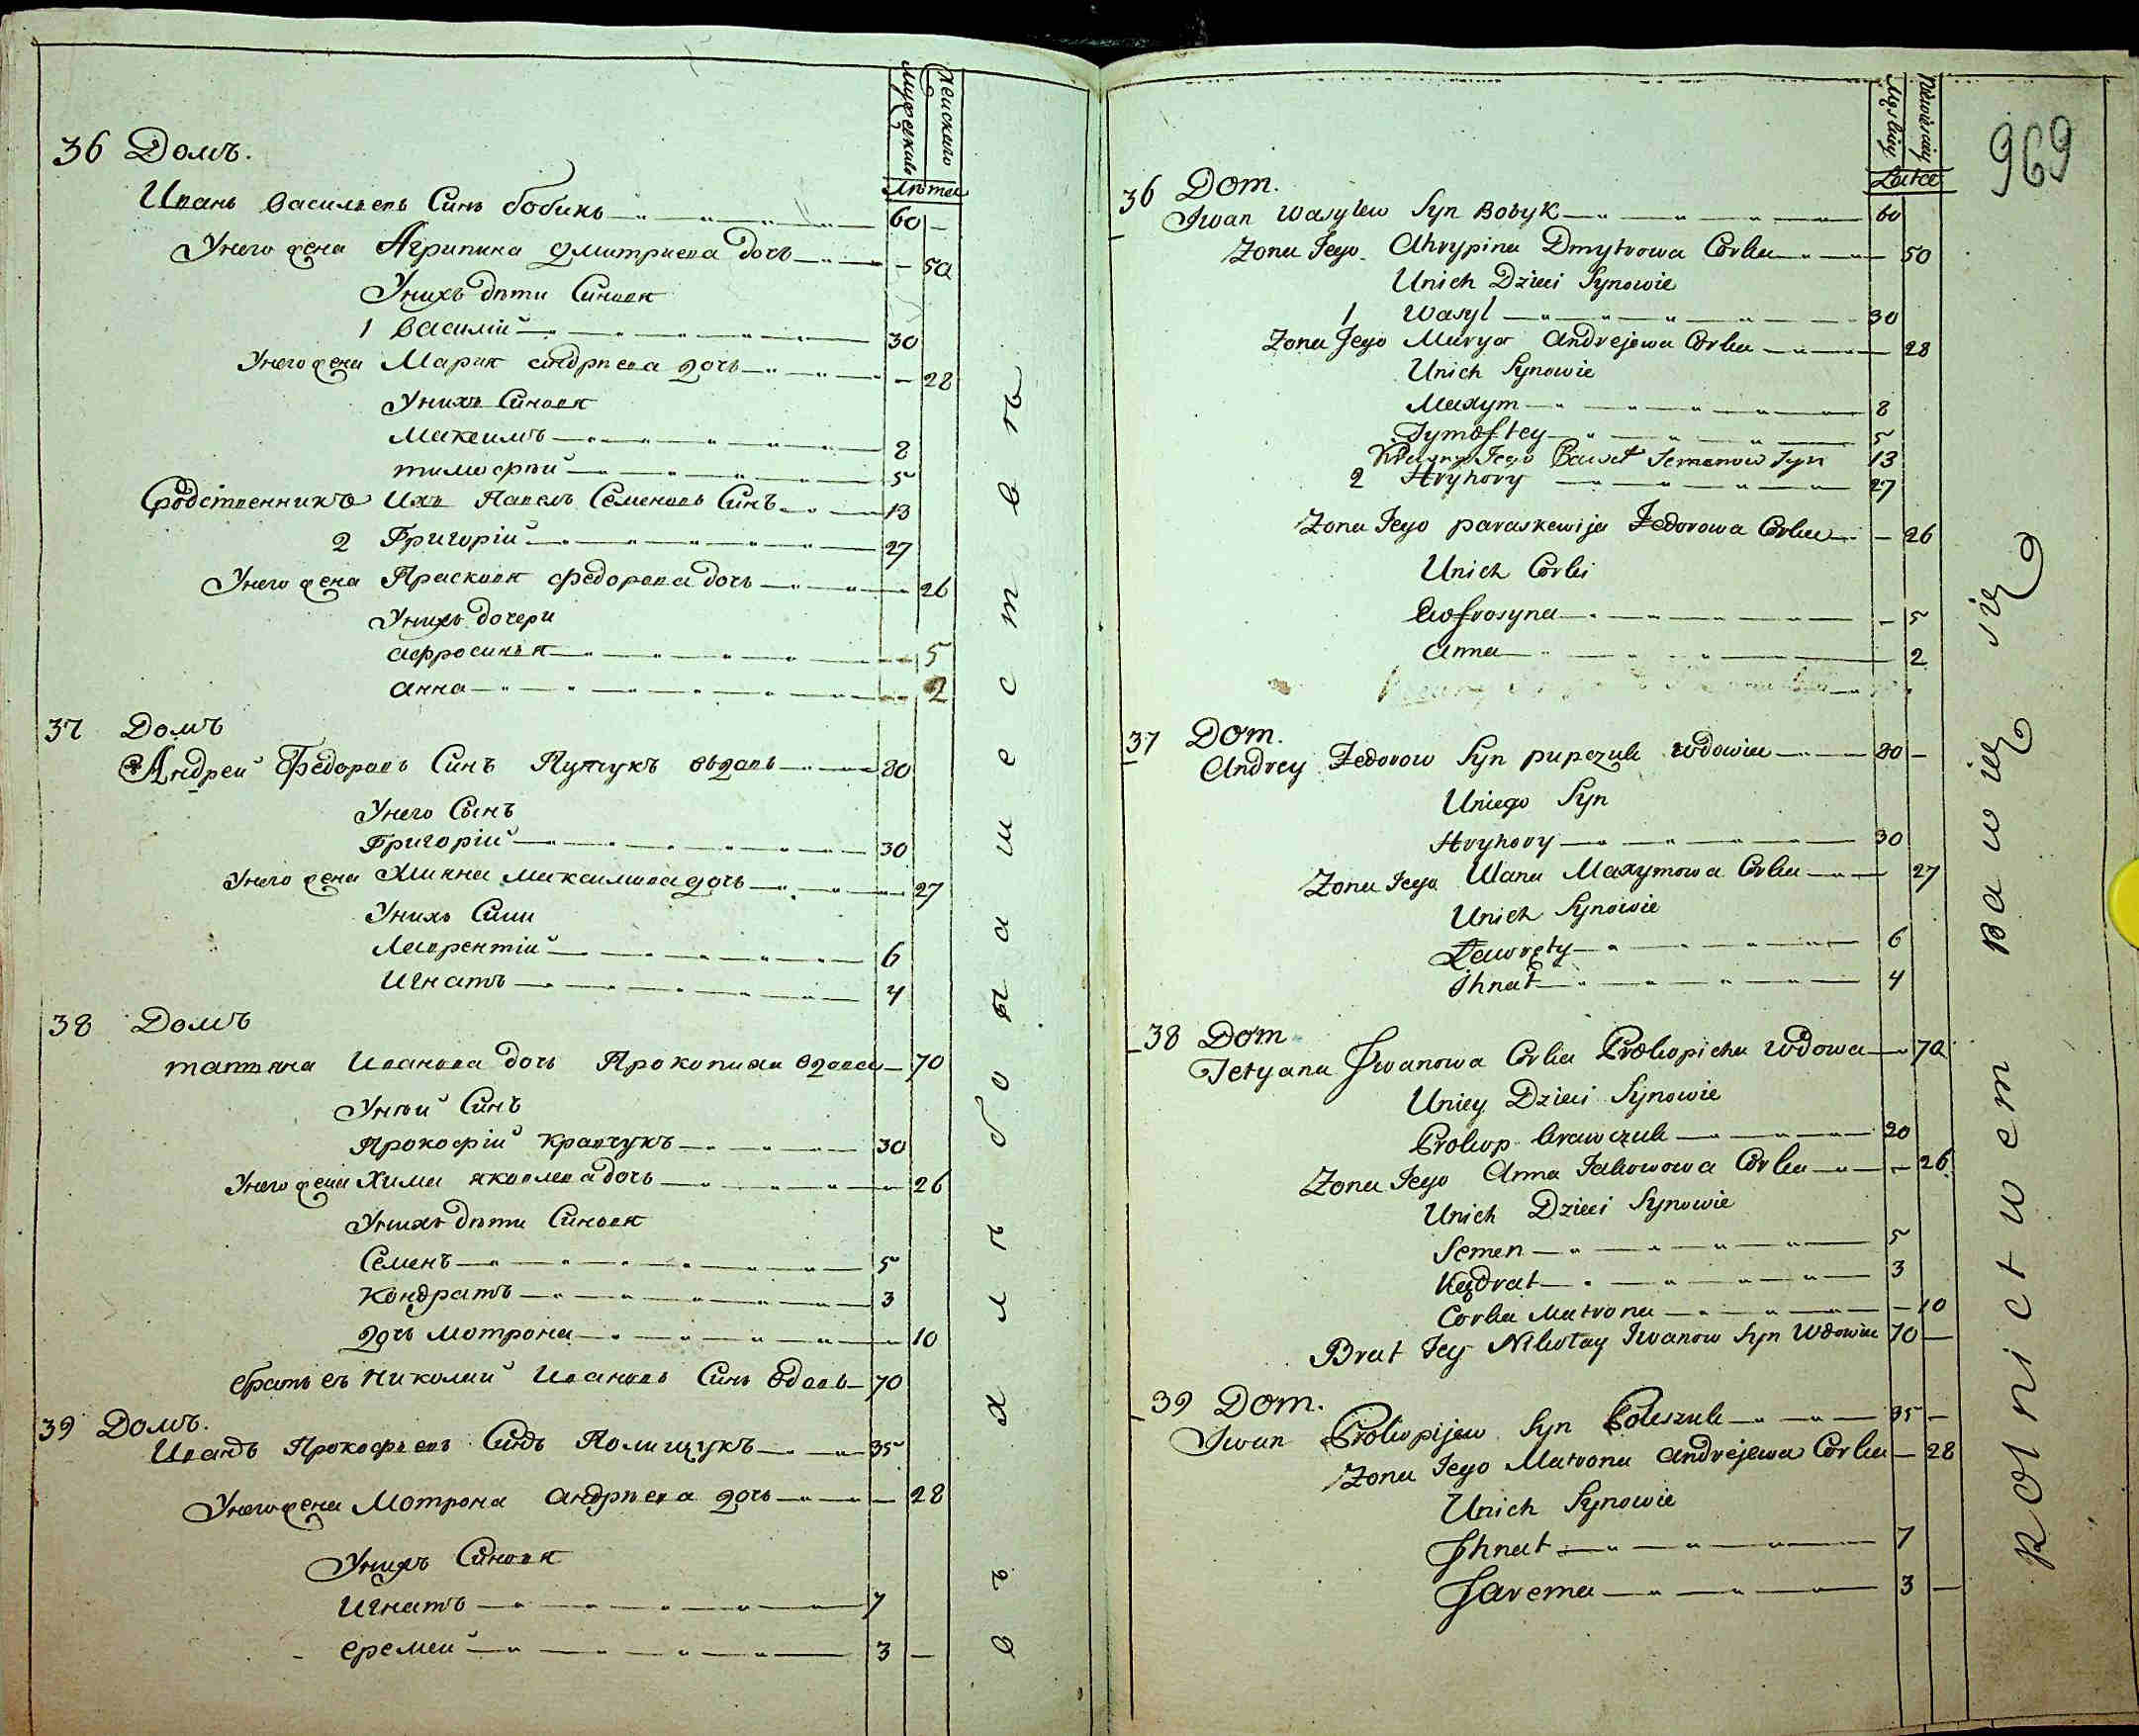 Мужеского
Женскаго
Лѣта
36 Домъ.
Иванъ Васильевъ Синъ бобикъ 60 –
Унего жена Агрипина Дмитриева дочь – 50
Унихъ дѣти Синовя
1 Василій 30
Унего жена Мария андрѣева дочь – 28
Унихъ Синовя
Максимъ 8
тимофѣй 5
Сродственникъ Ихъ Павелъ Семеновъ Синъ 13
2 Григорій 27
Унего жена Прасковя федорова дочь 26
Унихъ дочери
афросиня 5
анна 2
37 Домъ
Андрей Федоровъ Синъ Пупчукъ вдовъ 80
Унего Сынъ
Григорій 30
Унего жена Уляна максимова дочь 27
Унихъ Сини
Лаврентій 6
Игнатъ 4
38 Домъ
татяна Иванова дочь Прокопиха вдова 70
Унѣй Синъ
Прокофій Кравчукъ 30
Унего жена Хима яковлева дочь 26
Унихъ дѣти Синовя
Семенъ 5
Кондратъ 3
дочь мотрона 10
братъ еѣ Николай Ивановъ Синъ вдовъ 70
39 Домъ.
Иванъ Прокофьевъ Синъ Полищукъ 35
Унего жена Мотрона андрѣева дочь – 28
Унихъ Синовя
Игнатъ 7
еремей 3 –
в ъ х л ѣ б о п а ш е с т в ѣ
969
Męskiey
Niewieściey
Latta
36 Dom.
Iwan Wasylew Syn Bobyk 60
Zona Jego Ahrypina Dmytrowa Corka 50
Unich Dzieci Synowie
1 Wasyl 30
Zona Jego Marya Andrejewa Corka 28
Unich Synowie
Maxym 8
Tymoftey 5
Krewny Jego Paweł Semenow Syn 13
2 Hryhory 27
Zona Jego paraskewija Fedorowa Corka – 26
Unich Corki
Eufrosyna – 5
Anna 2
37 Dom.
Andrey Fedorow Syn pupczuk wdowiec 80 –
Uniego Syn
Hryhory 30
Zona Jego Ulana Maxymowa Corka 27
Unich Synowie
Ławręty 6
Ihnat 4
38 Dom
Tetyana Iwanowa Corka Prokopicha Wdowa 70
Uniey Dzieci Synowie
Prokop krawczuk 20
Zona Jego Anna Jakowowa Corka – 26
Unich Dzieci Synowie
Semen 5
Kądrat 3
Corka Matrona – 10
Brat Jey Nikołay Iwanow Syn Wdowiec 70 –
39 Dom.
Iwan Prokopijew Syn Poleszuk 35 –
Zona Jego Matrona andrejewa Corka – 28
Unich Synowie
Ihnat 7
Jarema 3 –
rolnictwem Bawięię się